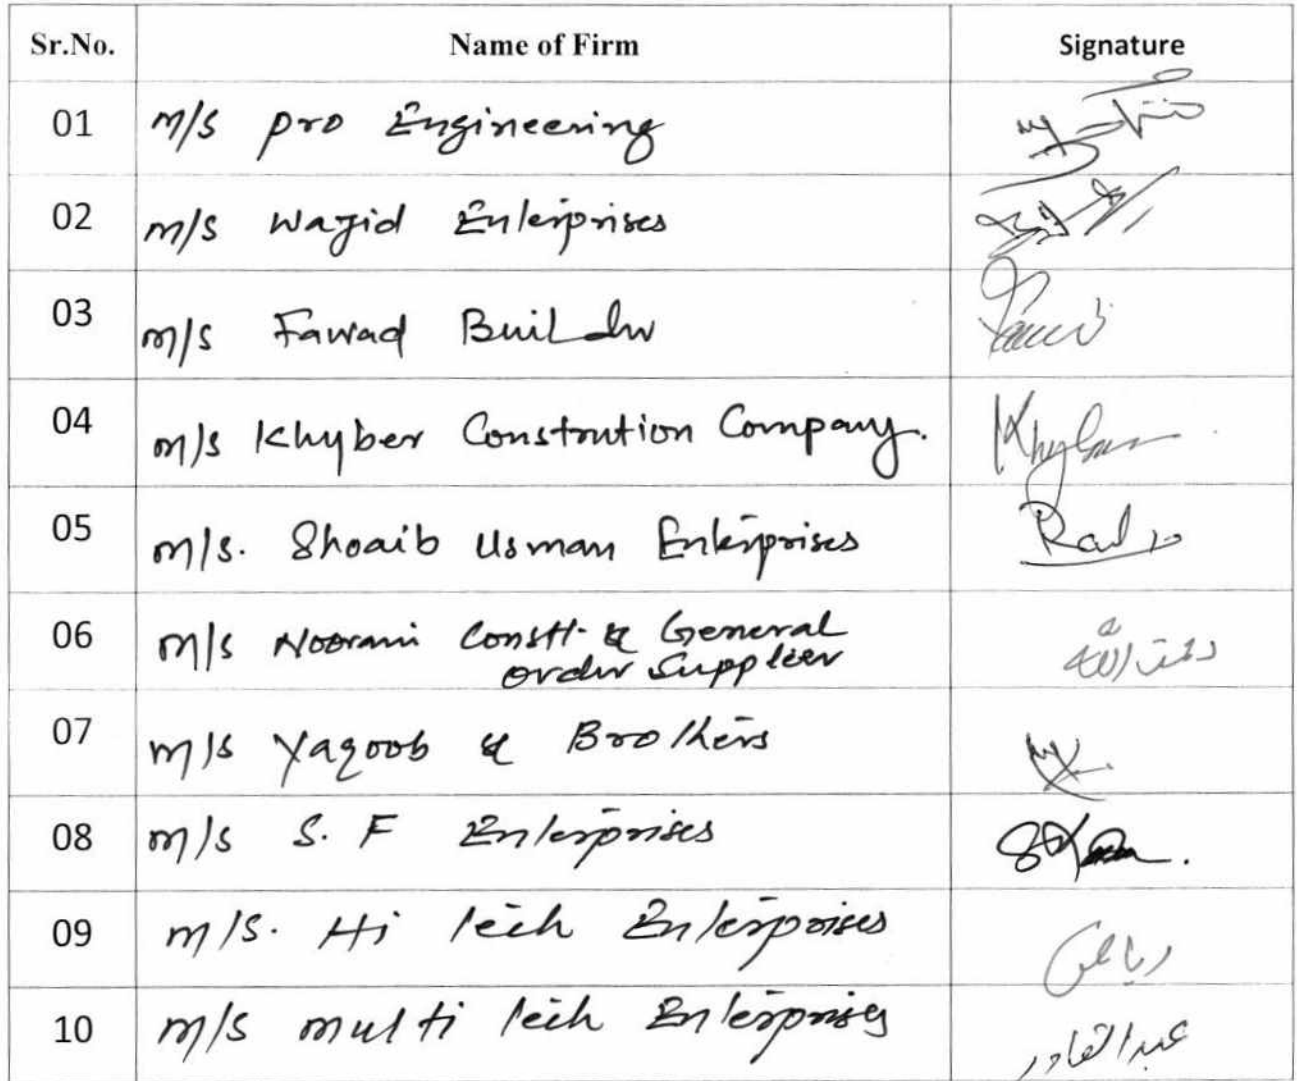 Sr.No. Name of Firm Signature
01 M/S pro Engineering
02 M/S Wajid Enterprises
03 M/S Fawad Builder
04 M/S Khyber Constrution Company. Khyber
05 M/S. Shoaib Usman Enterprises
06 M/S Noorani Constt. & General
order Supplier
07 M/S Yaqoob & Brothers
08 M/S S. F Enterprises
09 M/S. Hi Tech Enterprises
10 M/S multi Tech Enterprises عبدالقادر